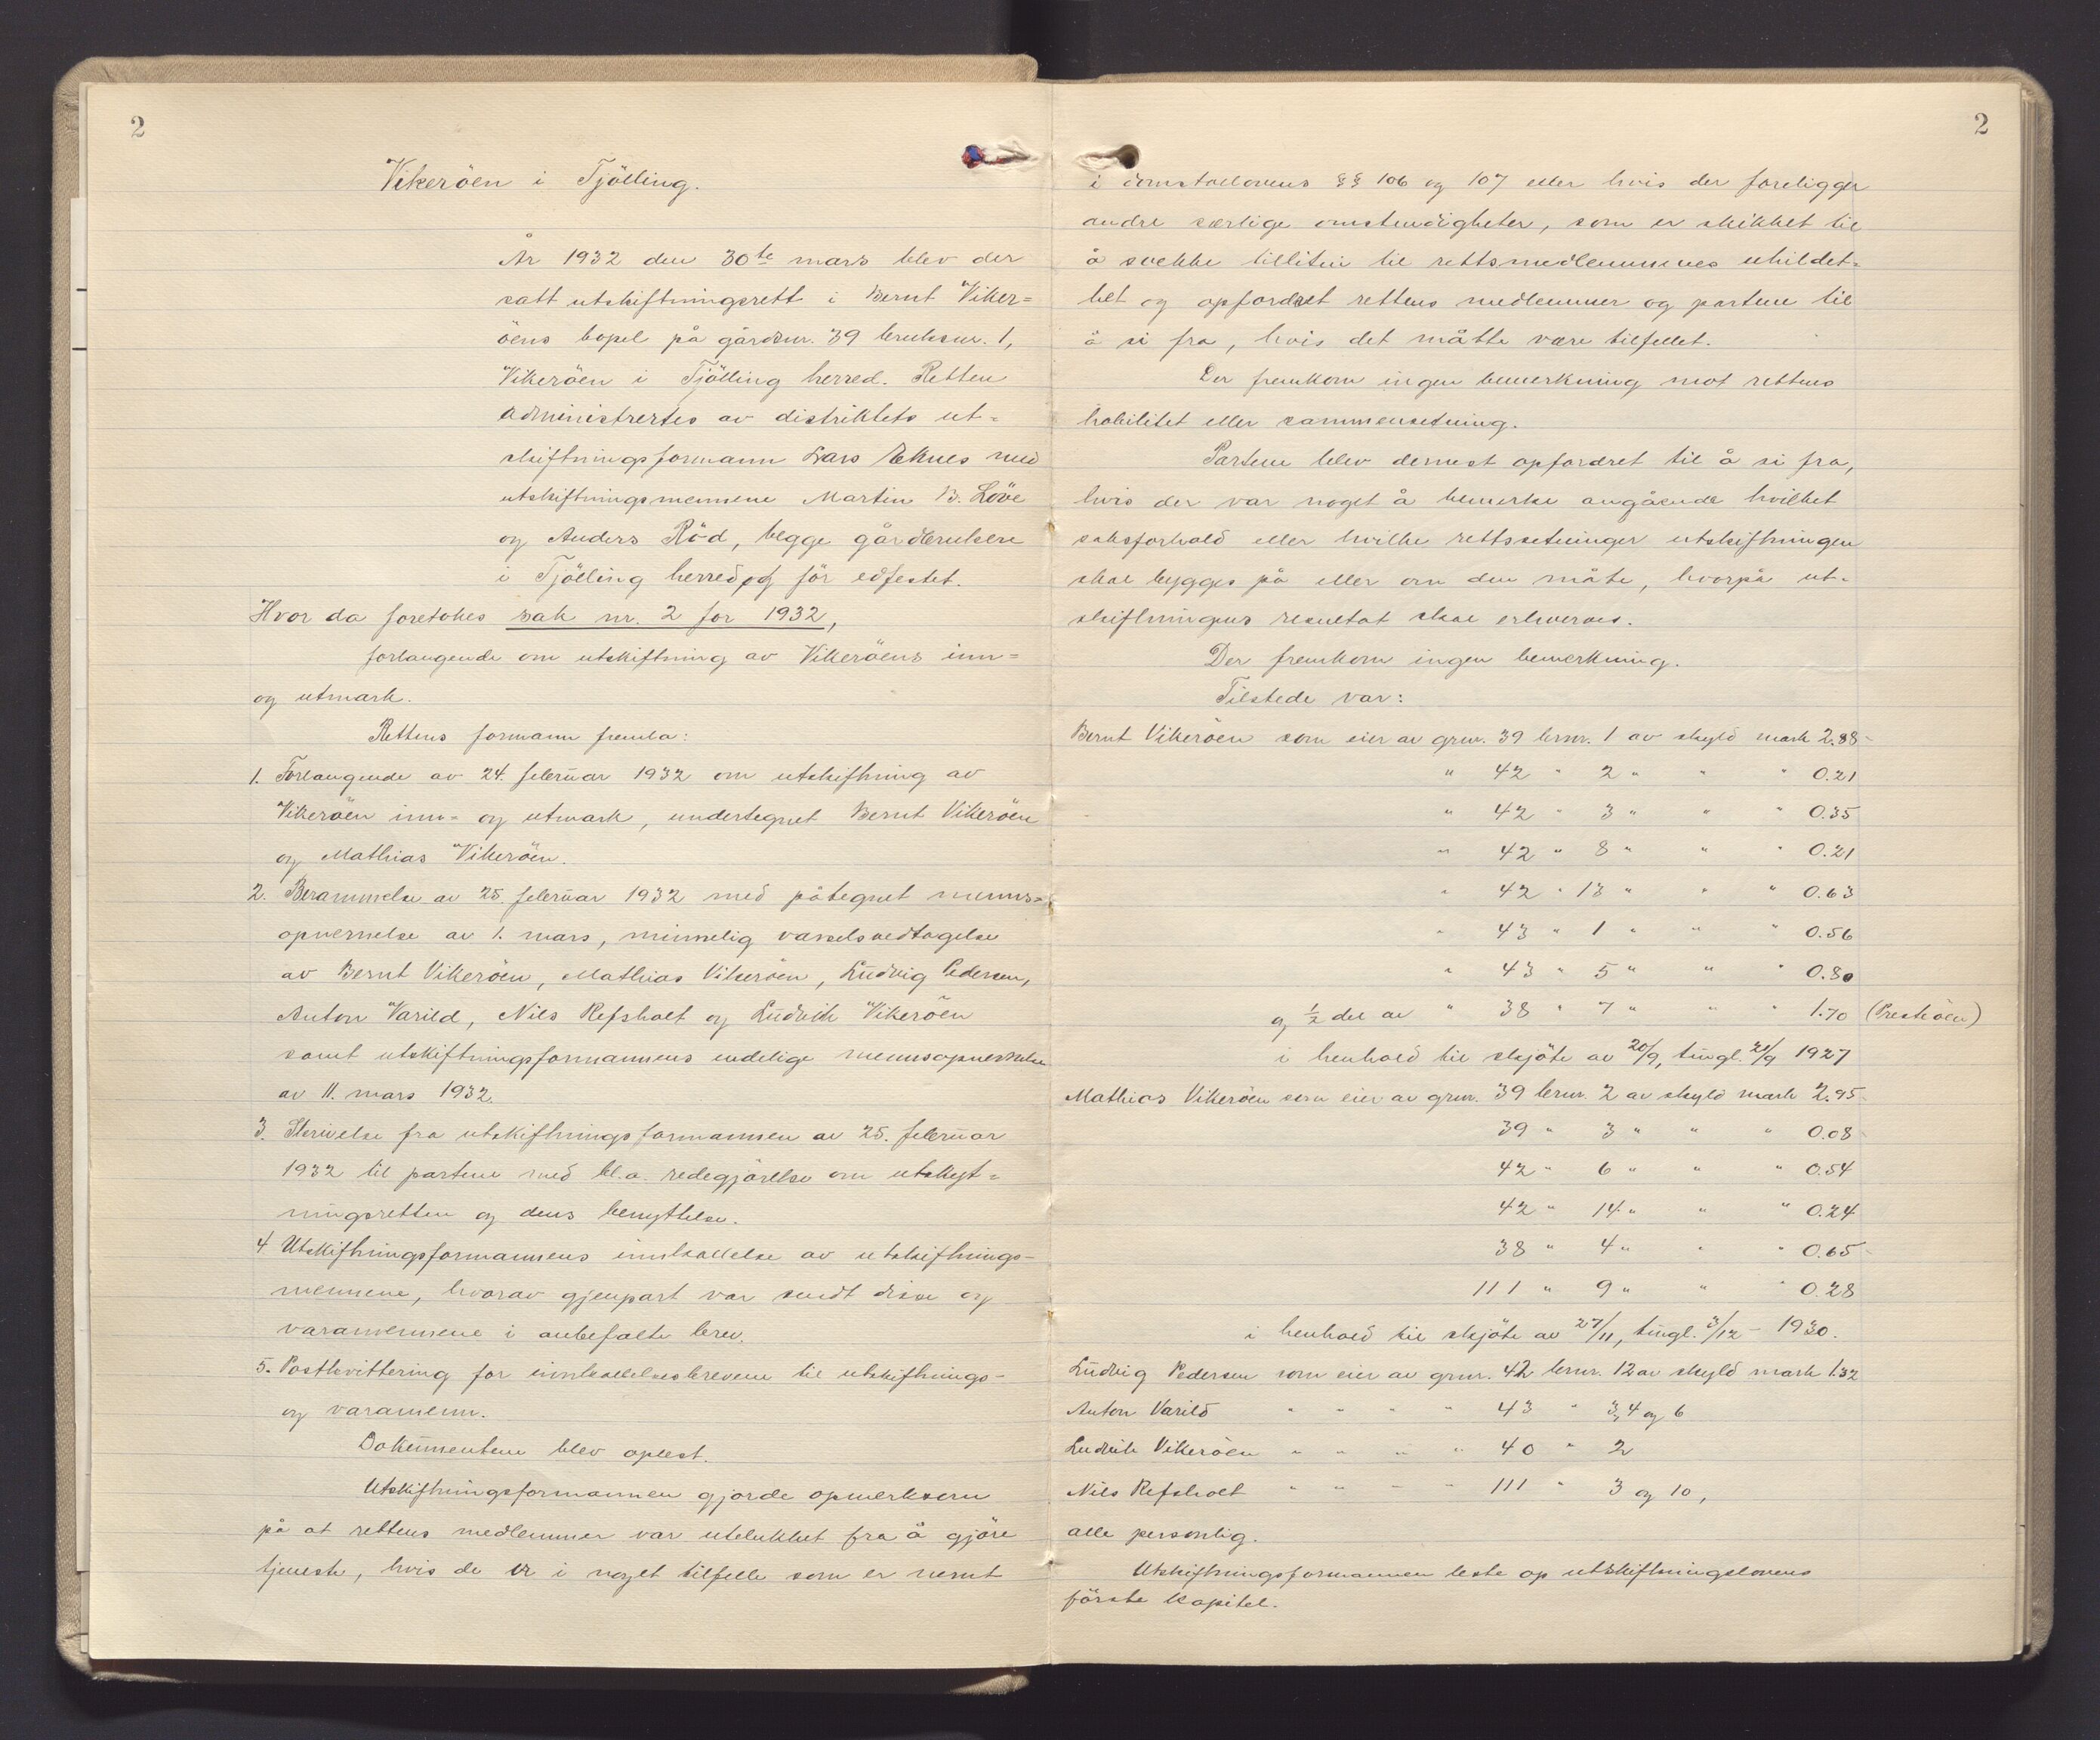 2
Vikeröen i Tjölling.
År 1932 den 30te mars blev der
satt utskiftningsrett i Bernt Viker=
öens bopel på gårdsnr. 39 bruksnr. 1,
Vikeröen i Tjölling herred. Retten
administrertes av distriktets ut=
skiftningsformann Lars Eknes med
utskiftningsmennene Martin B. Löve
og Anders Röd, begge gårdbrukere
i Tjölling herred og för edfestet.
Hvor da foretokes sak nr. 2 for 1932,
forlangende om utskiftning av Vikeröens inn=
og utmark.
Rettens formann fremla:
1. Forlangende av 24. februar 1932 om utskiftning av
Vikeröen inn= og utmark, undertegnet Bernt Vikeröen
og Mathias Vikeröen.
2. Berammelse av 25. februar 1932 med påtegnet menns=
opnevnelse av 1. mars, minnelig varselsvedtagelse
av Bernt Vikeröen, Mathias Vikeröen, Ludvig Pedersen,
Anton Varild, Nils Refsholt og Ludvik Vikeröen
samt utskiftningsformannens endelige mennsopnevnelse
av 11. mars 1932.
3. Skrivelse fra utskiftningsformannen av 25. februar
1932 til partene med bl.a. redegjörelse om utskyt=
ningsretten og dens benyttelse.
4 Utskiftningsformannens innkallelse av utskiftnings-
mennene, hvorav gjenpart var sendt disse og
varamennene i anbefalte brev.
5. Postkvittering for innkallelsesbrevene til utskiftnings-
og varamenn.
Dokumentene blev oplest.
Utskiftningsformannen gjorde opmerksom
på at rettens medlemmer var utelukket fra å gjöre
tjeneste, hvis de er i noget tilfelle som er nevnt
2
i domstollovens §§ 106 og 107 eller hvis der foreligger
andre særlige omstendigheter, som er skikket til
å svekke tilliten til rettsmedlemmenes uhildet=
het og opfordret rettens medlemmer og partene til
å si fra, hvis det måtte være tilfellet.
Der fremkom ingen bemerkning mot rettens
habilitet eller sammensetning.
Partene blev dernest opfordret til å si fra,
hvis der var noget å bemerke angående hvilket
saksforhold eller hvilke rettssetninger utskiftningen
skal bygges på eller om den måte, hvorpå ut=
skiftningens resultat skal erhverves.
Der fremkom ingen bemerkning.
Tilstede var:
Bernt Vikeröen som eier av grnr. 39 brnr. 1 av skyld mark 2.88
" 42 " 2 " " " 0.21
" 42 " 3 " " " 0.35
" 42 " 8 " " " 0.21
" 42 " 13 " " " 0.63
" 43 " 1 " " " 0.56
" 43 " 5 " " " 0.80
og ½ del av " 38 " 7 " " " 1.70 (Presteöen)
i henhold til skjöte av 20/9, tingl. 21/9 1927
Mathias Vikeröen som eier av grnr. 39 brnr. 2 av skyld mark 2.95
39 " 3 " " " 0.08
42 " 6 " " " 0.54
42 " 14 " " " 0.24
38 " 4 " " " 0.65
111 " 9 " " " 0.28
i henhold til skjöte av 27/11, tingl. 3/12 - 1930.
Ludvig Pedersen som eier av grnr. 42 brnr. 12 av skyld mark 1.32
Anton Varild " " " " 43 " 3, 4 og 6
Ludvik Vikeröen " " " " 40 " 2
Nils Refsholt " " " " 111 " 3 og 10,
alle personlig.
Utskiftningsformannen leste op utskiftningslovens
förste kapitel.